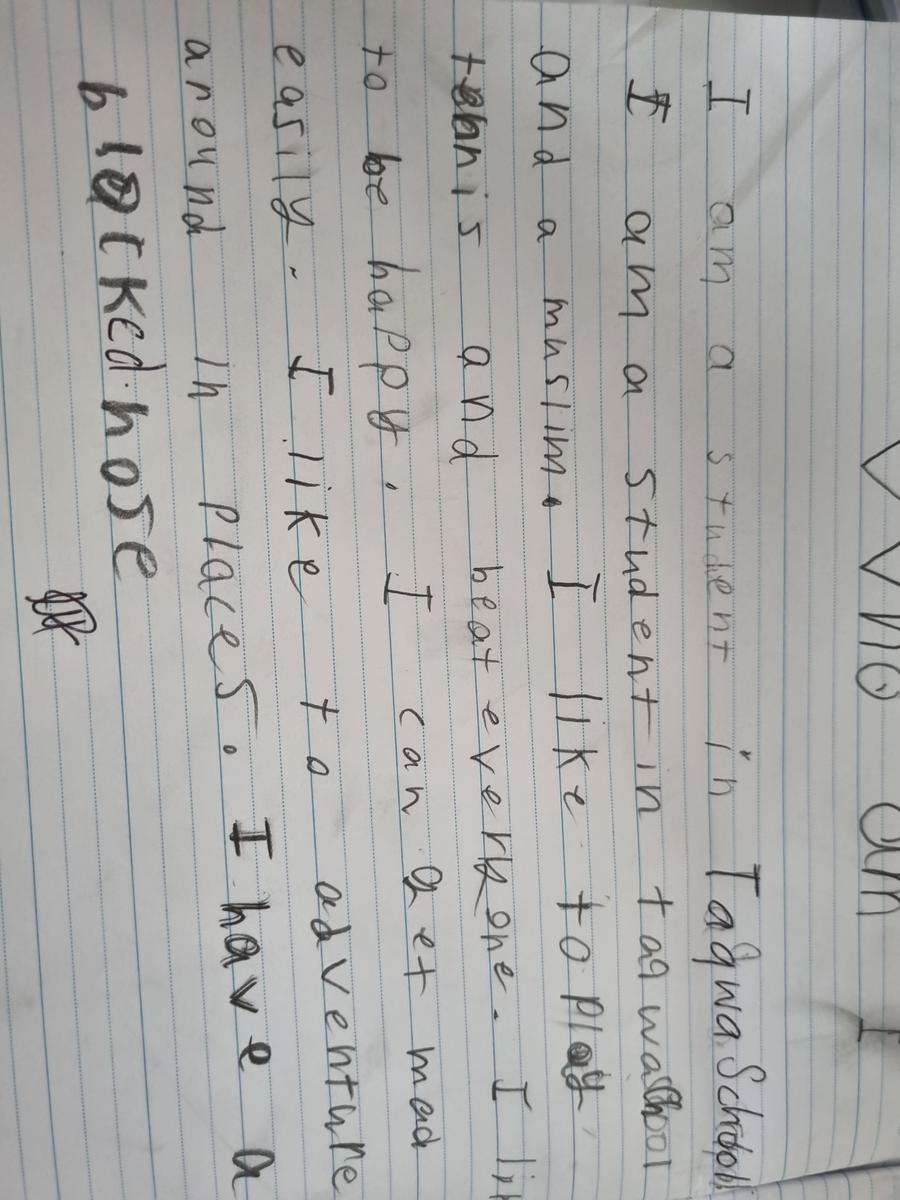 Who am I
I am a student in Taqwa School
I am a student in taqwa
and a muslim. I like to play
tennis and beat everyone. I
to be happy. I can get mad
easily. I like to adventure
around in places. I have a
blocked nose